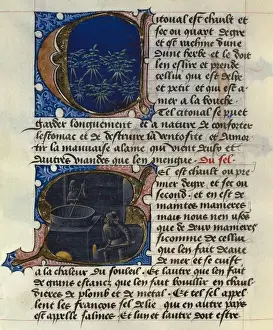 Citoual est chault et
sec ou quart degre
et est racine dune
dune herbe et le doit
len eslire et prendre
cellui qui est delie
et petit et qui est a
mer a la bouche
Tel citoual se puet
garder longuement et a nature de conforter
lestomac et de destruire la ventosite et damor
tir la mauuaise alaine qui vient daulx et
dautres viandes que len mengue Du sel
Sel est chault ou pre
mier degre et sec ou
second et en est de
maintes manieres
mais nous nen usons
que de deux manieres
sicomme de cellui
que len fait deaue
de mer et se cuist
a la chaleur du souleil Et lautre que len fait
de grans estancs que len fait bouillir en chaul
dieres de plomb et de metal Et ce sel apel
lent les francois sel delie qui en autre pays
est apelle salmee Et lun et lautre doit estre